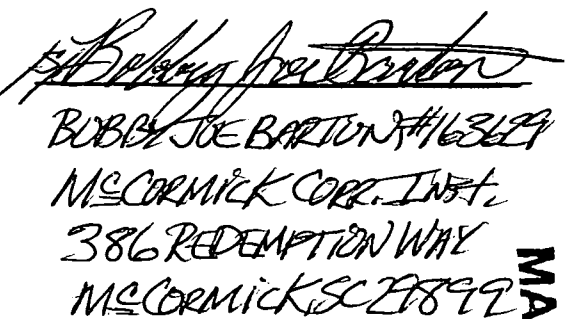 s/ Bobby Joe Barton
BOBBY JOE BARTON #163629
MCCORMICK CORR. INST.
386 REDEMPTION WAY
MCCORMICK, SC 29899
MA